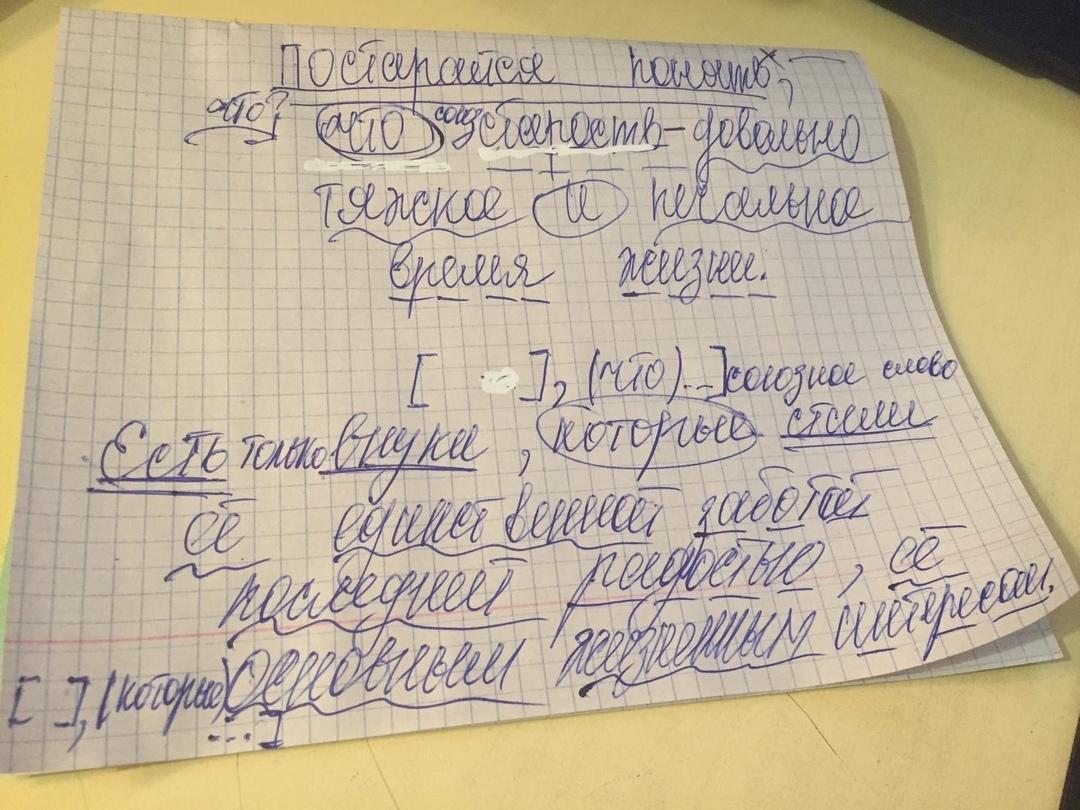 Постарайся понять,
что? что союз старость – довольно
тяжкое и печальное
время жизни.
[ ], (что)...] союзное слово
Есть только внуки, которые стали
её единственной заботой
последней радостью, её
основными жизненным интересом.
[ ], (которые)
...]